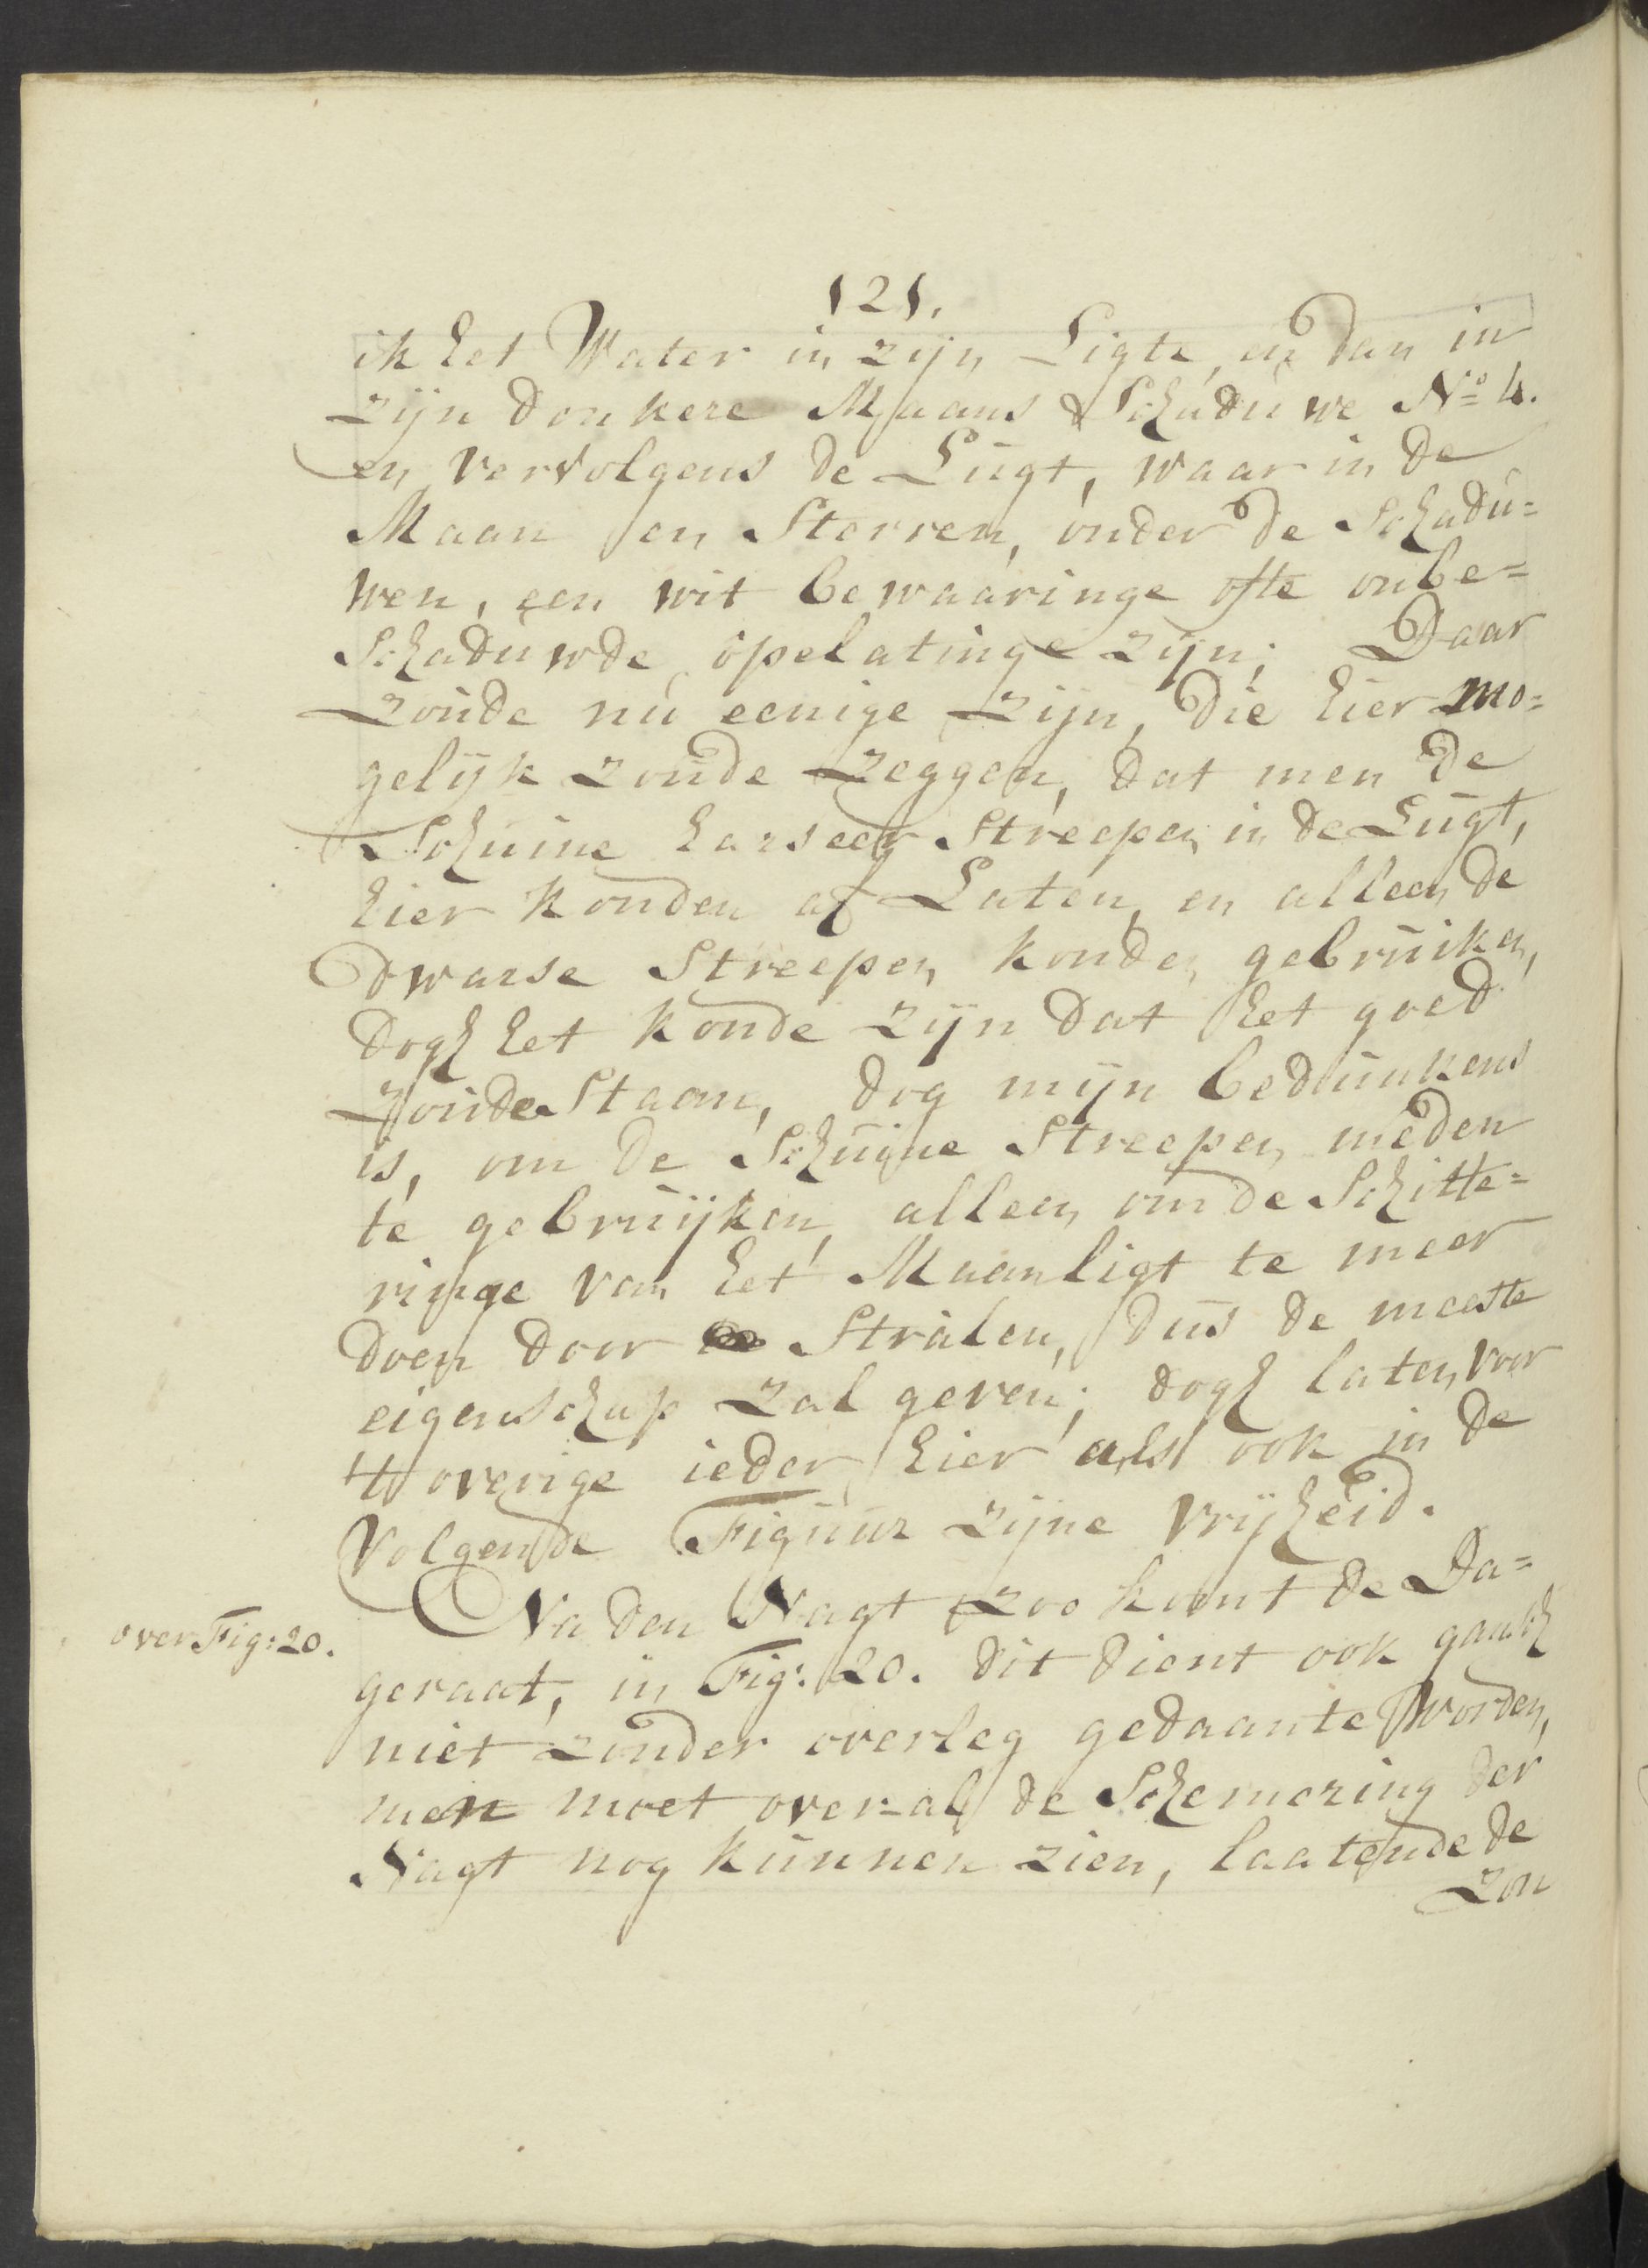 121.
ik het Water in zijn Ligte, en dan in
zijn donkere Maans Schaduwe No 4.
en vervolgens de Lugt, waar in de
Maan en Sterren, onder de Schadu=
wen, een wit bewaaringe ofte onbe=
Schaduwde opelatinge zijn; Daar
zoude nu eenige zijn, die hier mo=
gelijk zoude zeggen, dat men de
Schuine harseer Streepen in de Lugt,
hier konden af Laten, en alleen de
dwarse Streepen konden gebruiken,
dogh het konde zijn dat het goed
zoude Staan, dog mijn bedunkens
is, om de Schuine Streepen meden
te gebruijken, alleen om de Schitte=
ringe van het Maanligt te meer
doen door Stralen, dus de meeste
eigenschap zal geven; dogh laten voor
't overige ieder hier als ook in de
Volgende Figuur zijne vrijheid.
Na den Nagt zoo komt de Da=
over Fig: 20.
geraat, in Fig: 20. dit dient ook gansch
niet zonder overleg gedaante worden,
men moet over-al de Schemering der
Nagt nog kunnen zien, laatende de
zon